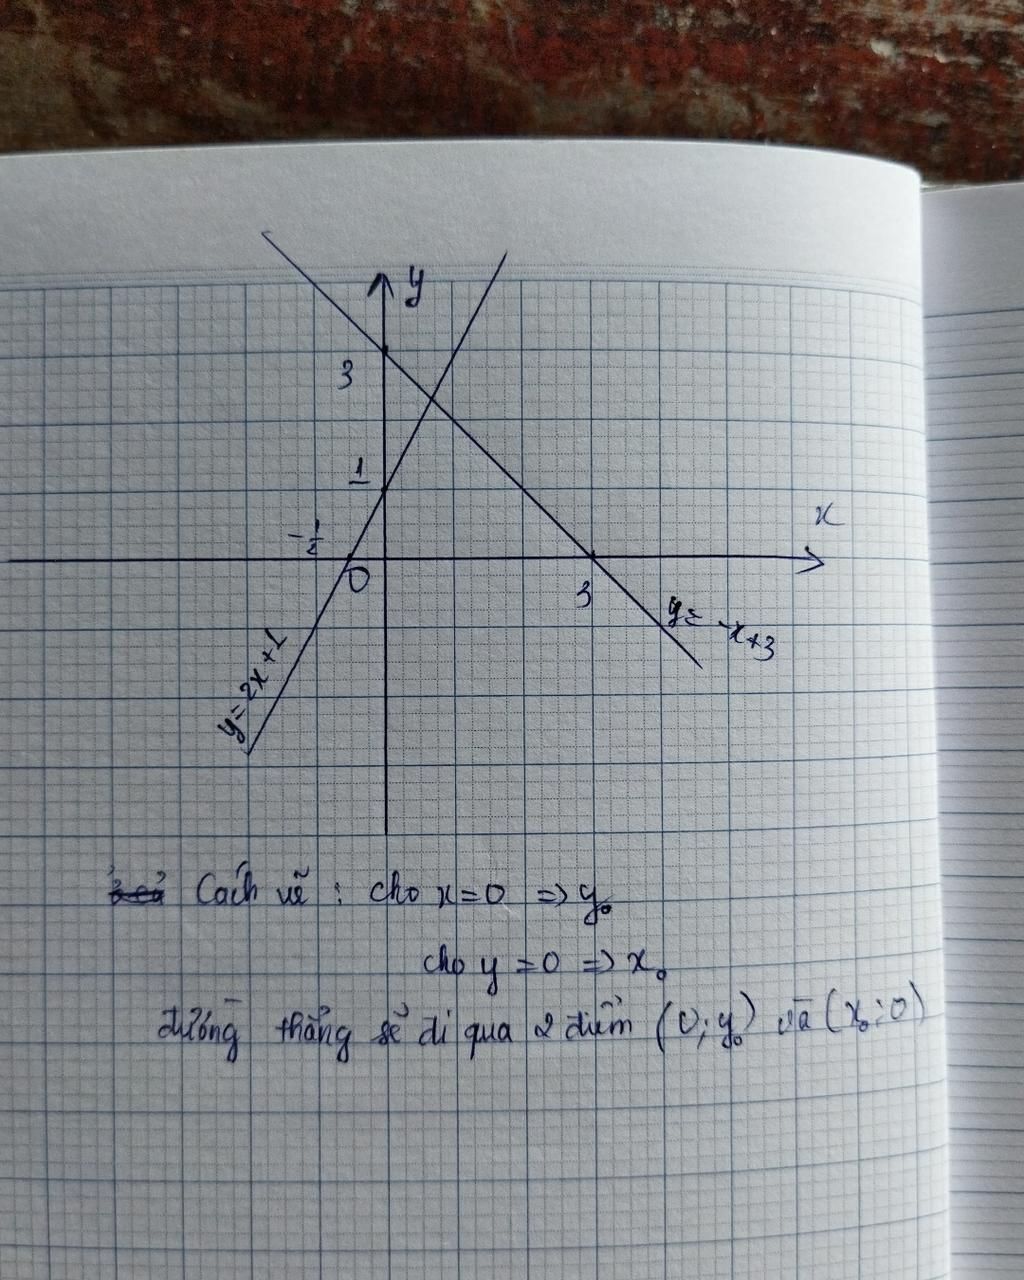 y
3
1
x
-1/2
0
3
y= -x+3
y=2x+1
Cách vẽ : cho x=0 => y₀
cho y=0 => x₀
đường thẳng sẽ đi qua 2 điểm (0; y₀) và (x₀; 0)